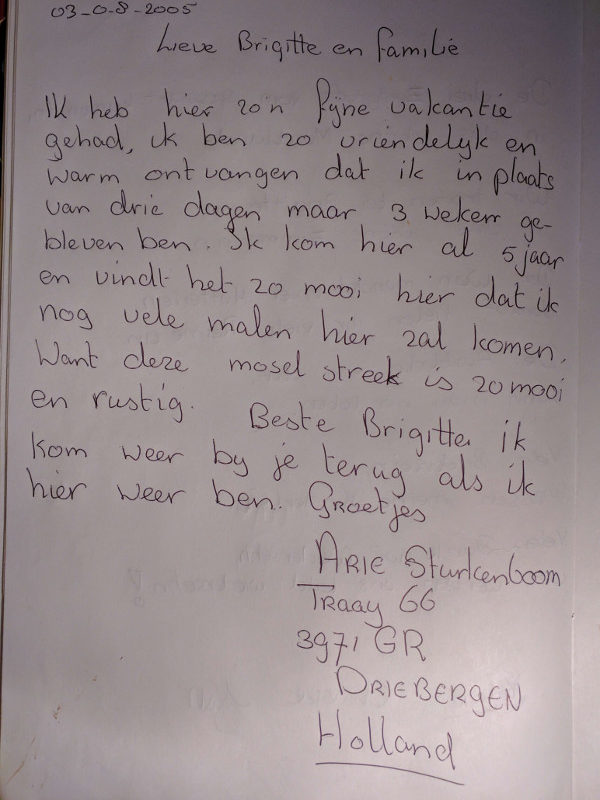 03-0-8-2005
Lieve Brigitte en familie
Ik heb hier zo'n fijne vakantie
gehad, ik ben zo vriendelyk en
warm ontvangen dat ik in plaats
van drie dagen maar 3 weken ge-
bleven ben. Ik kom hier al 5 jaar
en vindt het zo mooi hier dat ik
nog vele malen hier zal komen.
Want deze mosel streek is zo mooi
en rustig. Beste Brigitte ik
kom weer by je terug als ik
hier weer ben. Groetjes
Arie Sturkenboom
Traay 66
3971 GR
Driebergen
Holland